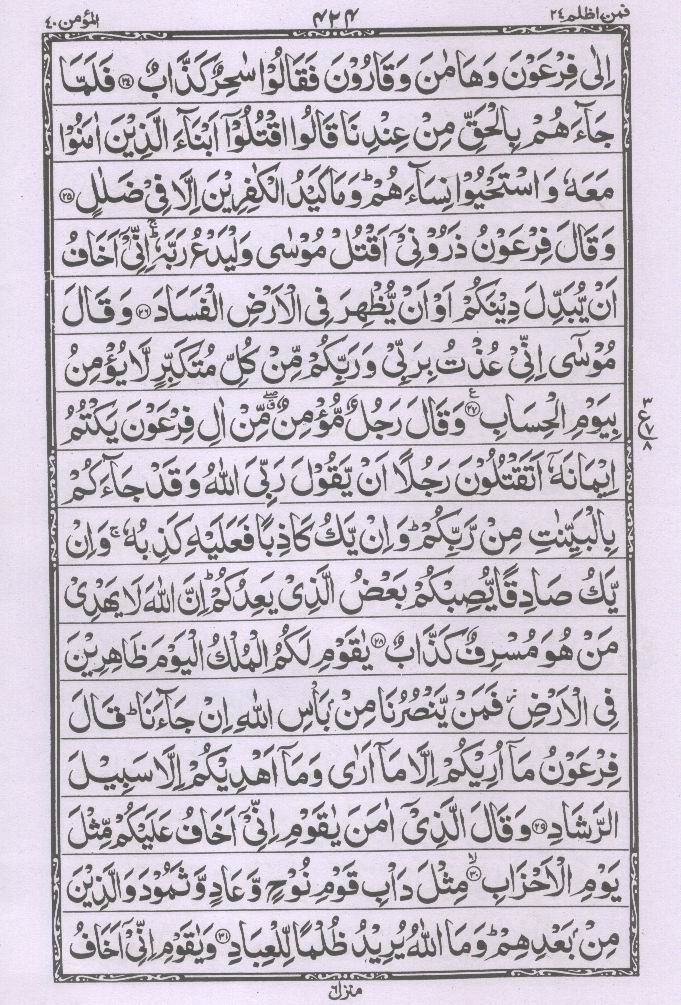 فمن اظلم ٢٤ ۴۲۴ المؤمن ۴۰
اِلٰى فِرْعَوْنَ وَهَامٰنَ وَقَارُوْنَ فَقَالُوْا سٰحِرٌ كَذَّابٌ ۝۲۴ فَلَمَّا
جَآءَهُمْ بِالْحَقِّ مِنْ عِنْدِنَا قَالُوا اقْتُلُوْٓا اَبْنَآءَ الَّذِيْنَ اٰمَنُوْا
مَعَهٗ وَاسْتَحْيُوْا نِسَآءَهُمْ ؕ وَمَا كَيْدُ الْكٰفِرِيْنَ اِلَّا فِيْ ضَلٰلٍ ۝۲۵
وَقَالَ فِرْعَوْنُ ذَرُوْنِيْٓ اَقْتُلْ مُوْسٰى وَلْيَدْعُ رَبَّهٗ ۚ اِنِّيْٓ اَخَافُ
اَنْ يُّبَدِّلَ دِيْنَكُمْ اَوْ اَنْ يُّظْهِرَ فِى الْاَرْضِ الْفَسَادَ ۝۲۶ وَقَالَ
مُوْسٰٓى اِنِّيْ عُذْتُ بِرَبِّيْ وَرَبِّكُمْ مِّنْ كُلِّ مُتَكَبِّرٍ لَّا يُؤْمِنُ
بِيَوْمِ الْحِسَابِ ۝۲۷ ع وَقَالَ رَجُلٌ مُّؤْمِنٌ ۖق مِّنْ اٰلِ فِرْعَوْنَ يَكْتُمُ
۳ ع ۷ ۸
اِيْمَانَهٗٓ اَتَقْتُلُوْنَ رَجُلًا اَنْ يَّقُوْلَ رَبِّيَ اللّٰهُ وَقَدْ جَآءَكُمْ
بِالْبَيِّنٰتِ مِنْ رَّبِّكُمْ ؕ وَاِنْ يَّكُ كَاذِبًا فَعَلَيْهِ كَذِبُهٗ ۚ وَاِنْ
يَّكُ صَادِقًا يُّصِبْكُمْ بَعْضُ الَّذِيْ يَعِدُكُمْ ؕ اِنَّ اللّٰهَ لَا يَهْدِيْ
مَنْ هُوَ مُسْرِفٌ كَذَّابٌ ۝۲۸ يٰقَوْمِ لَكُمُ الْمُلْكُ الْيَوْمَ ظَاهِرِيْنَ
فِى الْاَرْضِ ز فَمَنْ يَّنْصُرُنَا مِنْۢ بَاْسِ اللّٰهِ اِنْ جَآءَنَا ؕ قَالَ
فِرْعَوْنُ مَآ اُرِيْكُمْ اِلَّا مَآ اَرٰى وَمَآ اَهْدِيْكُمْ اِلَّا سَبِيْلَ
الرَّشَادِ ۝۲۹ وَقَالَ الَّذِيْٓ اٰمَنَ يٰقَوْمِ اِنِّيْٓ اَخَافُ عَلَيْكُمْ مِّثْلَ
يَوْمِ الْاَحْزَابِ ۝۳۰ۙ مِثْلَ دَاْبِ قَوْمِ نُوْحٍ وَّعَادٍ وَّثَمُوْدَ وَالَّذِيْنَ
مِنْۢ بَعْدِهِمْ ؕ وَمَا اللّٰهُ يُرِيْدُ ظُلْمًا لِّلْعِبَادِ ۝۳۱ وَيٰقَوْمِ اِنِّيْٓ اَخَافُ
منزل ٦